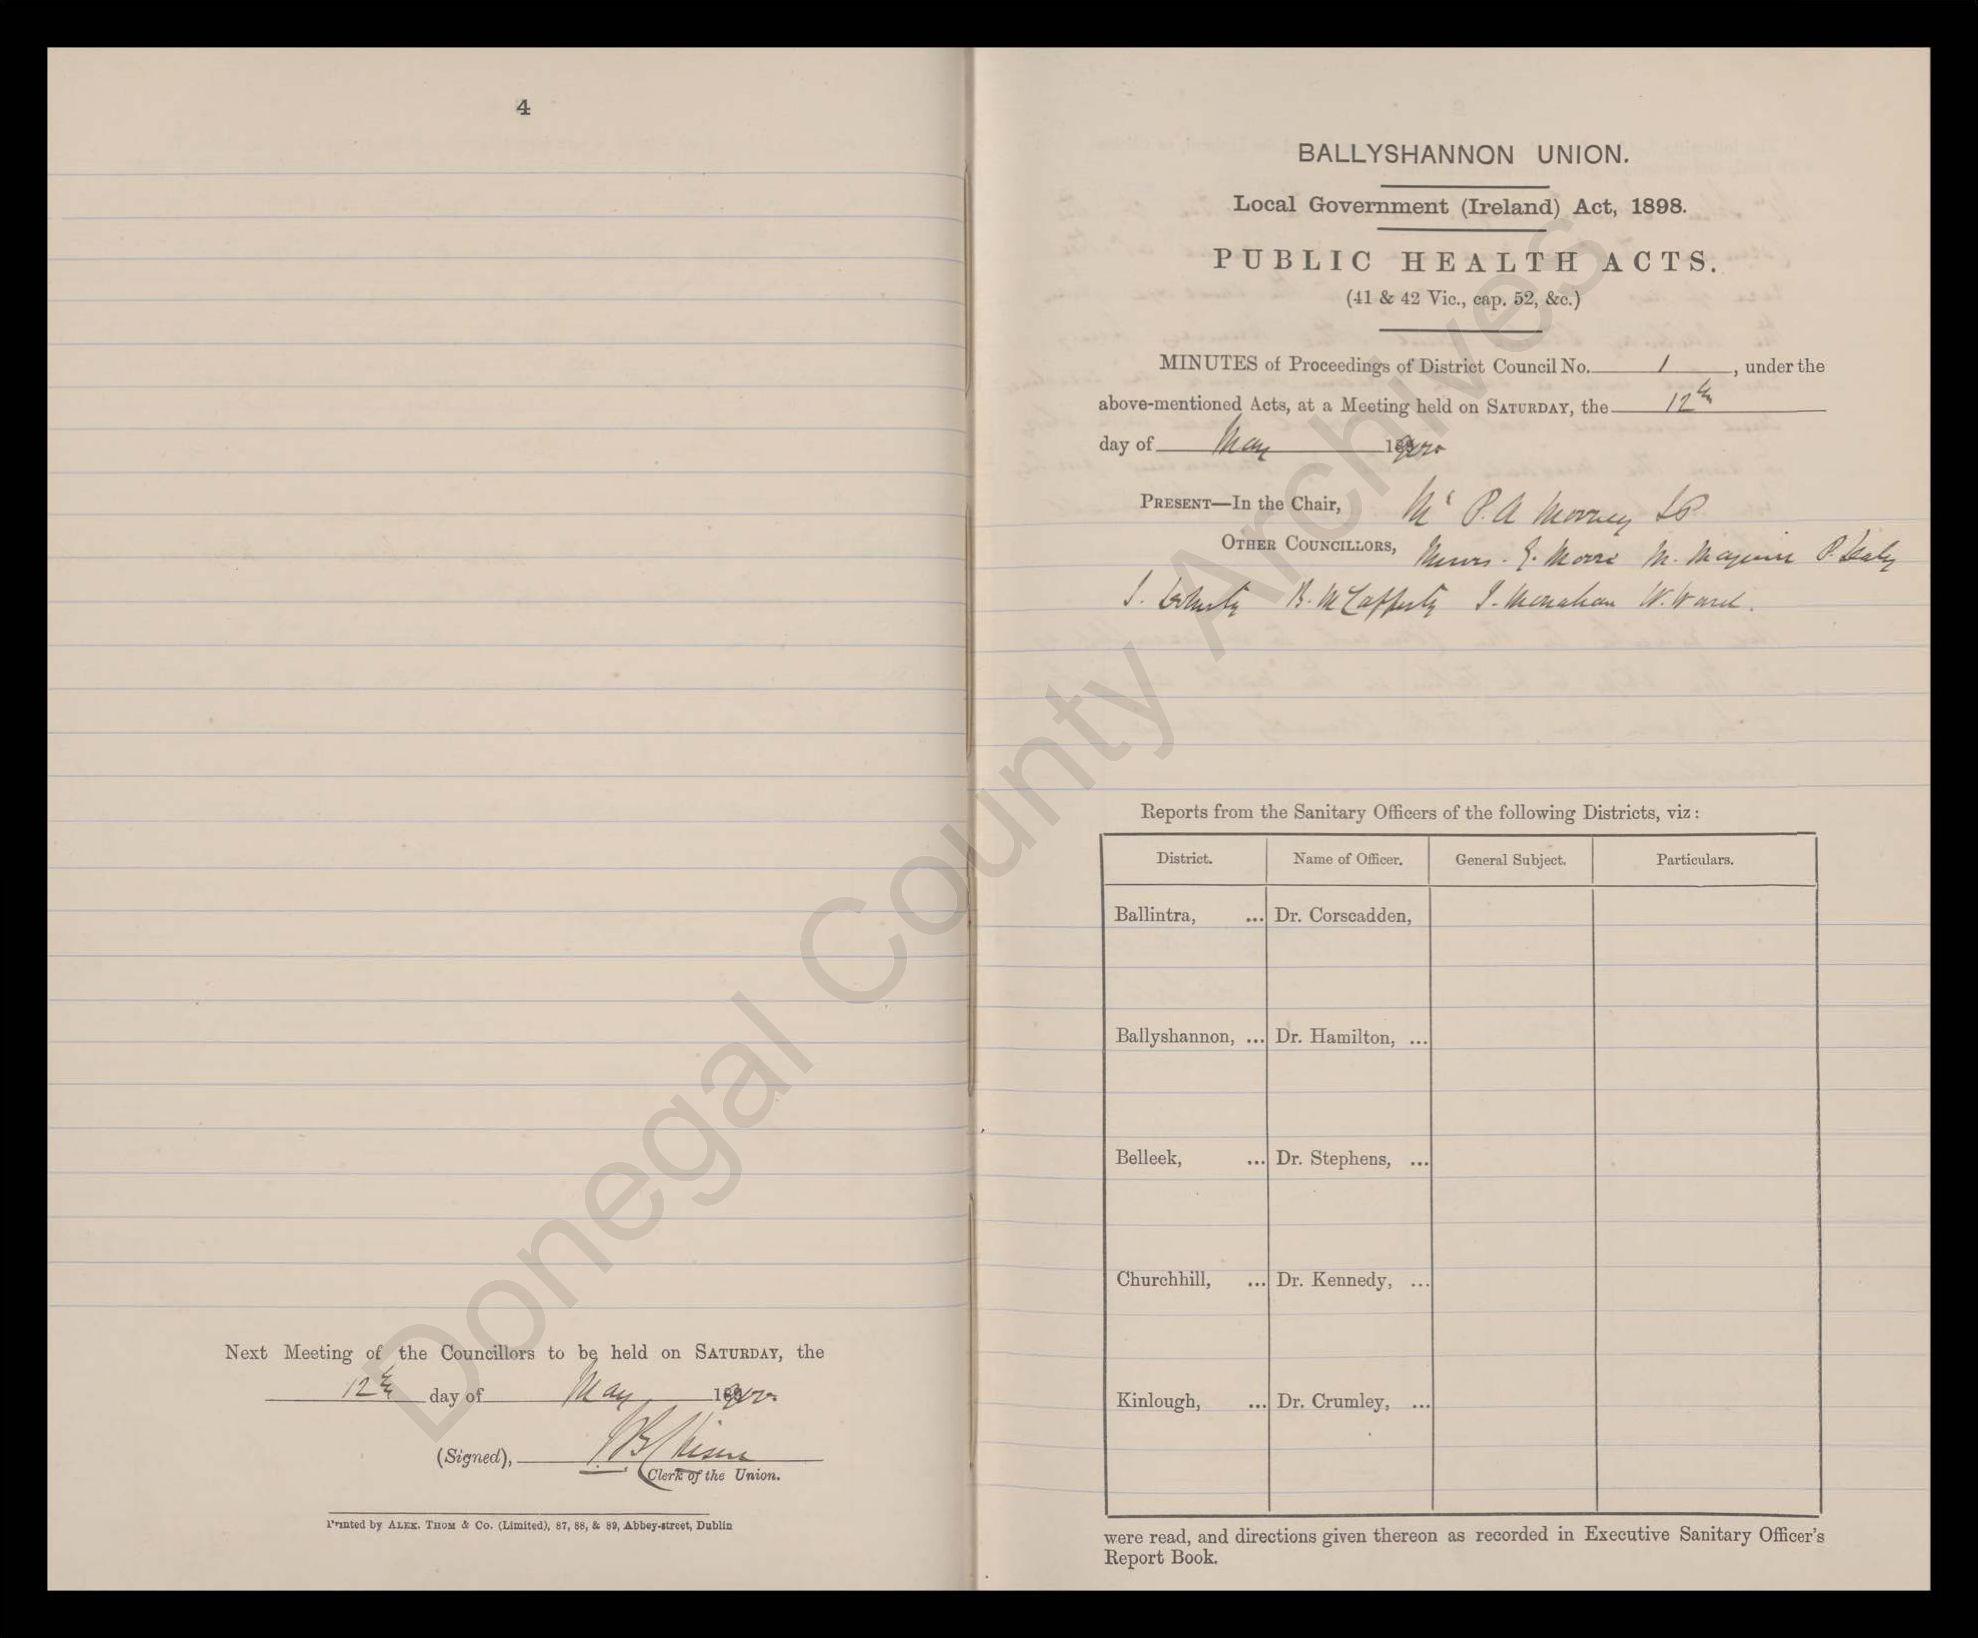 4
Next Meeting of the Councillors to be held on SATURDAY, the
12th day of May 1900
(Signed),
Clerk of the Union.
Printed by ALEX. THOM & Co. (Limited), 87, 88, & 89, Abbey-street, Dublin
BALLYSHANNON UNION.
Local Government (Ireland) Act, 1898.
PUBLIC HEALTH ACTS.
(41 & 42 Vic., cap. 52, &c.)
MINUTES of Proceedings of District Council No. 1, under the
above-mentioned Acts, at a Meeting held on SATURDAY, the 12th
day of May 1900
PRESENT—In the Chair, Mr P. A Mooney JP
OTHER COUNCILLORS, Messrs. M. Maguire P. Daly
J. Doherty B. McCafferty J. Monahan W. Ward.
Reports from the Sanitary Officers of the following Districts, viz:
District. Name of Officer. General Subject. Particulars.
Ballintra, ... Dr. Corscadden,
Ballyshannon, ... Dr. Hamilton, ...
Belleek, ... Dr. Stephens, ...
Churchhill, ... Dr. Kennedy, ...
Kinlough, ... Dr. Crumley, ...
were read, and directions given thereon as recorded in Executive Sanitary Officer's
Report Book.
Donegal County Archives